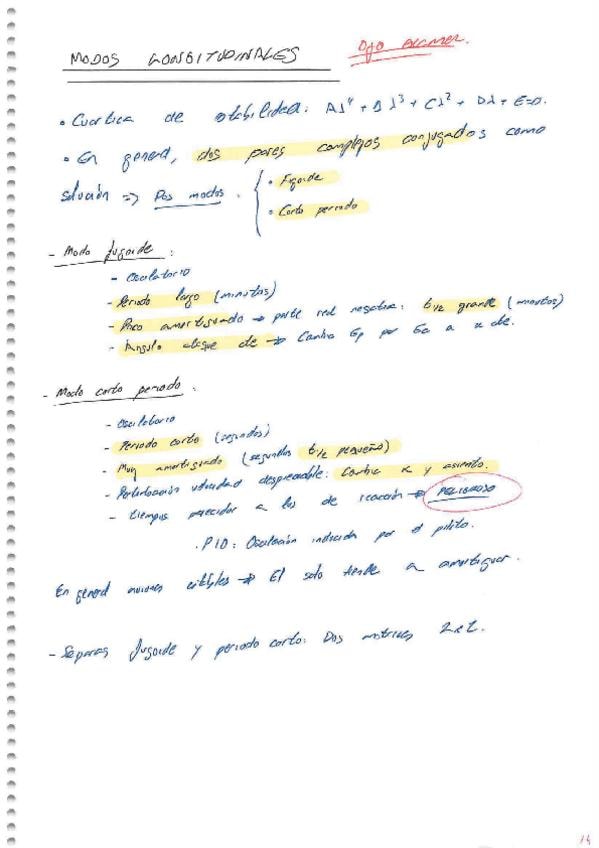 MODOS LONGITUDINALES Ojo examen.
• Cuartica de estabilidad: Aλ⁴ + Bλ³ + Cλ² + Dλ + E=0.
• En general, dos pares complejos conjugados como
solución => Dos modos. { • Fugoide
• Corto periodo
- Modo fugoide:
- Oscilatorio
- Periodo largo (minutos)
- Poco amortiguado → parte real negativa: t1/2 grande (minutos)
- Angulo ataque cte → Cambia Ep por Ec a α cte.
- Modo corto periodo:
- Oscilatorio
- Periodo corto (segundos)
- Muy amortiguado (segundos t1/2 pequeño)
- Perturbación velocidad despreciable: Cambia α y asiento.
- tiempos parecidos a los de reacción → PELIGROSO
. PIO: Oscilación inducida por el piloto.
En general aviones estables → El solo tiende a amortiguar.
- Separas fugoide y periodo corto: Dos matrices 2x2.
14